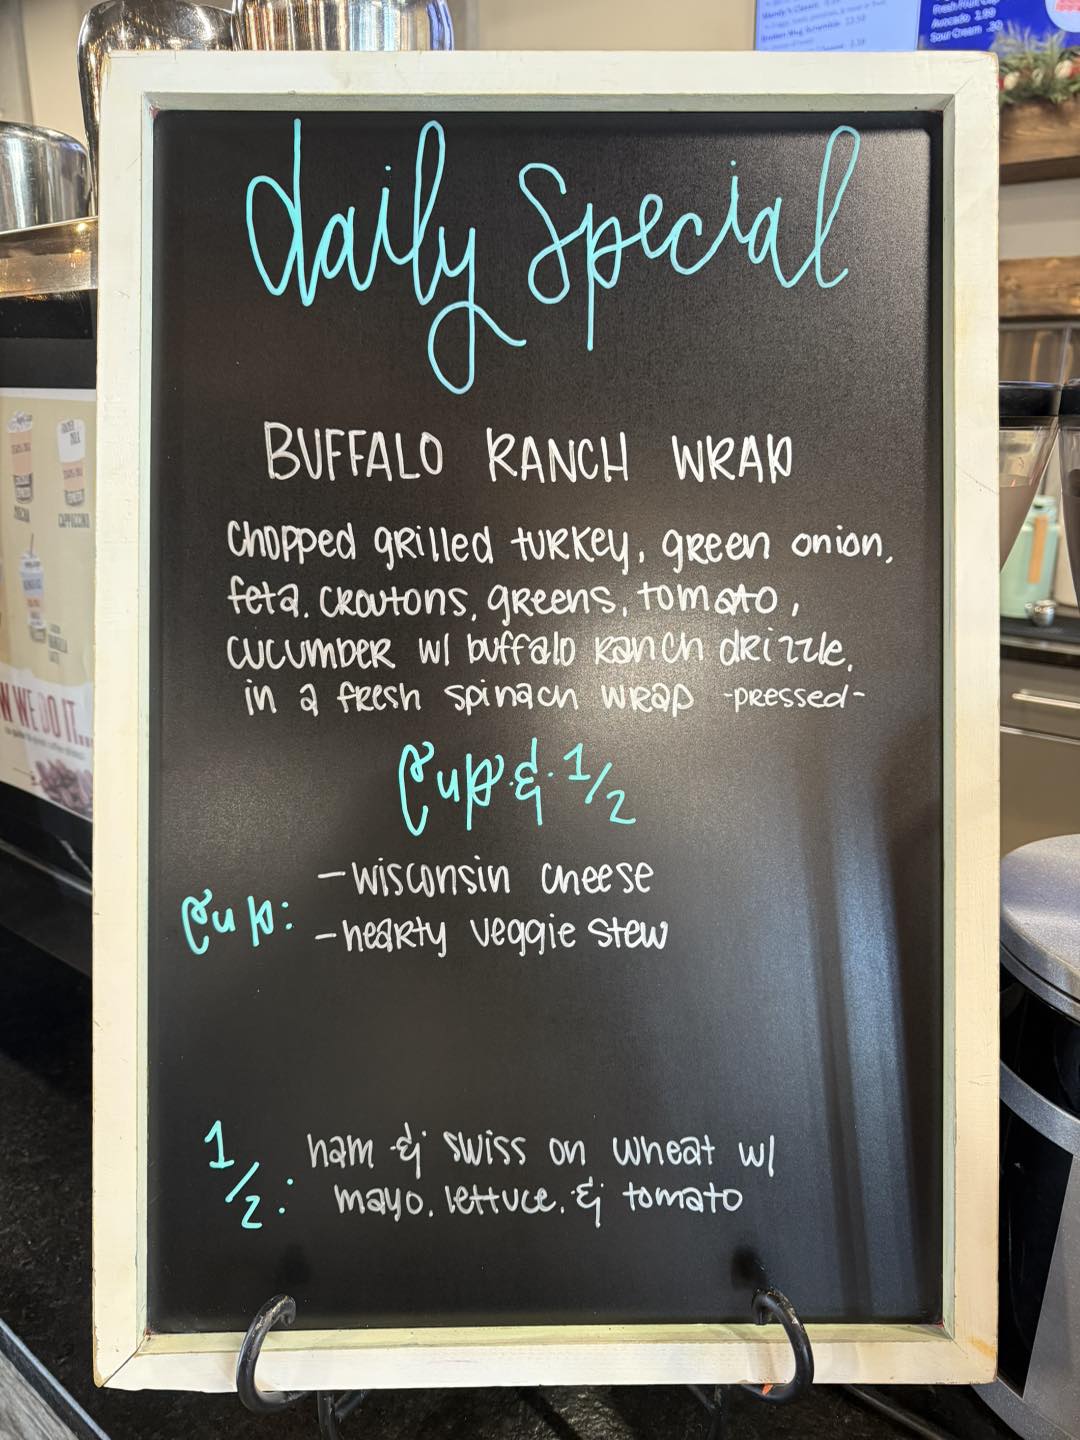 Wendy's Classic
Avocado 1.99
Sour Cream .50
daily special
BUFFALO RANCH WRAP
Chopped grilled turkey, green onion,
feta, croutons, greens, tomato,
cucumber w/ buffalo ranch drizzle,
in a fresh spinach wrap -pressed-
Cup & 1/2
Cup:
-wisconsin cheese
-hearty veggie stew
1/2: ham & swiss on wheat w/
mayo, lettuce, & tomato
CAPPUCCINO
W WE DO IT...